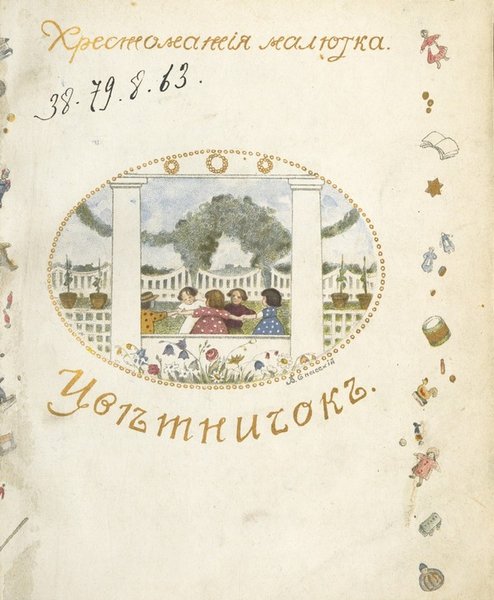 Хрестоматія малютка.
38.79.8.63.
Цвѣтничокъ.